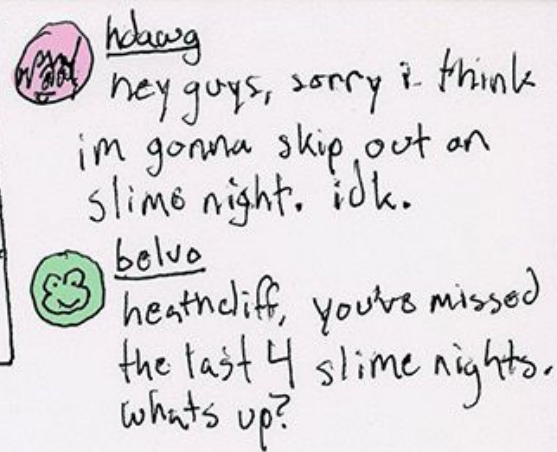 hdawg
hey guys, sorry i think
im gonna skip out on
slime night. idk.
belvo
heathcliff, you've missed
the last 4 slime nights.
whats up?